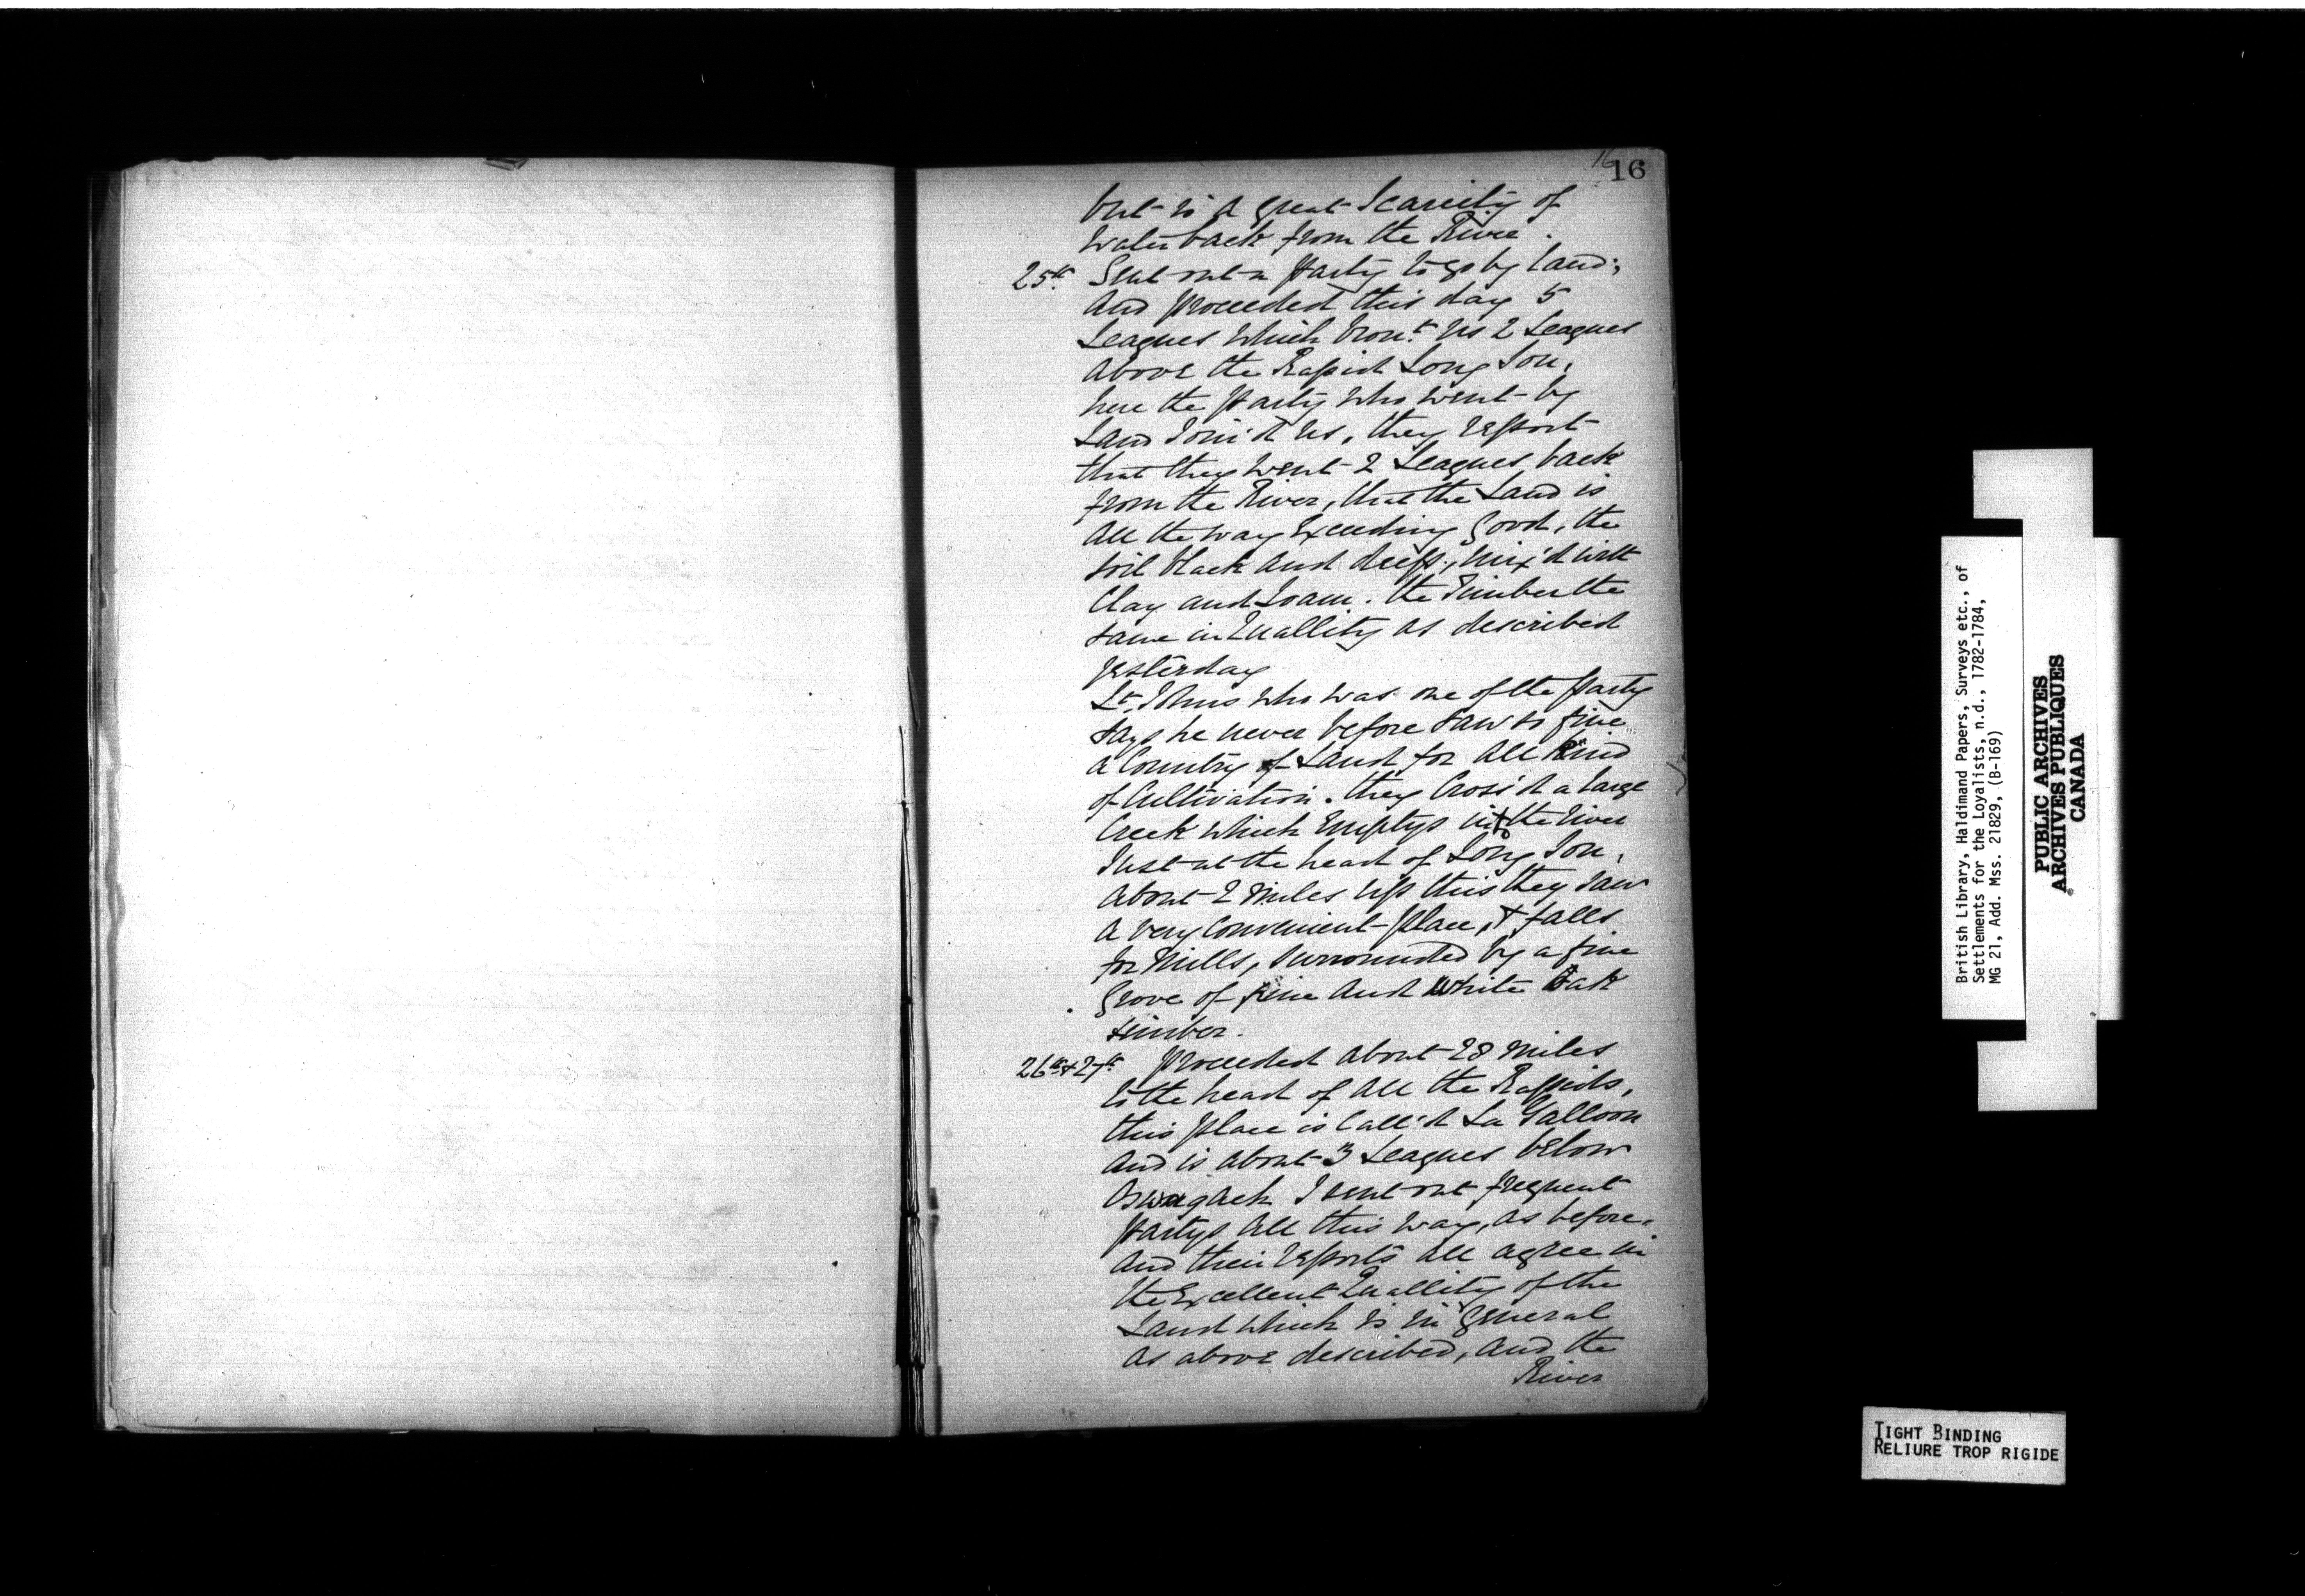 16
16
but is a great Scarcity of
water back from the River.
25th. Sent out a Party to go by Land;
And proceeded this day 5
Leagues which brout. us 2 Leagues
above the Rapid Long Sou,
here the Party who went by
Land Join'd us, they report
that they went 2 Leagues back
from the River, that the Land is
all the way Exceeding good, the
soil black and deep, mix'd with
Clay and Loam. the Timber the
same in Quallity as described
yesterday
Lt. Johns who was one of the Party
says he never before saw so fine
a Country of Land for all kind
of Cultivation. they Cross'd a Large
Creek which Emptys into the River
Just at the head of Long Sou,
about 2 miles up this they saw
a very Convenient place, & falls
for Mills, surrounded by a fine
Grove of pine and white Oak
timber.
26th. & 27th. proceeded about 28 miles
to the head of all the Rappids,
this place is Call'd La Galloon
and is about 3 Leagues below
Oswagach I sent out frequent
partys all this way, as before.
and their reports all agree in
the Excellent Quallity of the
Land which is in general
as above described, and the
River
British Library, Haldimand Papers, Surveys etc., of
Settlements for the Loyalists, n.d., 1782-1784,
MG 21, Add. Mss. 21829, (B-169)
PUBLIC ARCHIVES
ARCHIVES PUBLIQUES
CANADA
TIGHT BINDING
RELIURE TROP RIGIDE